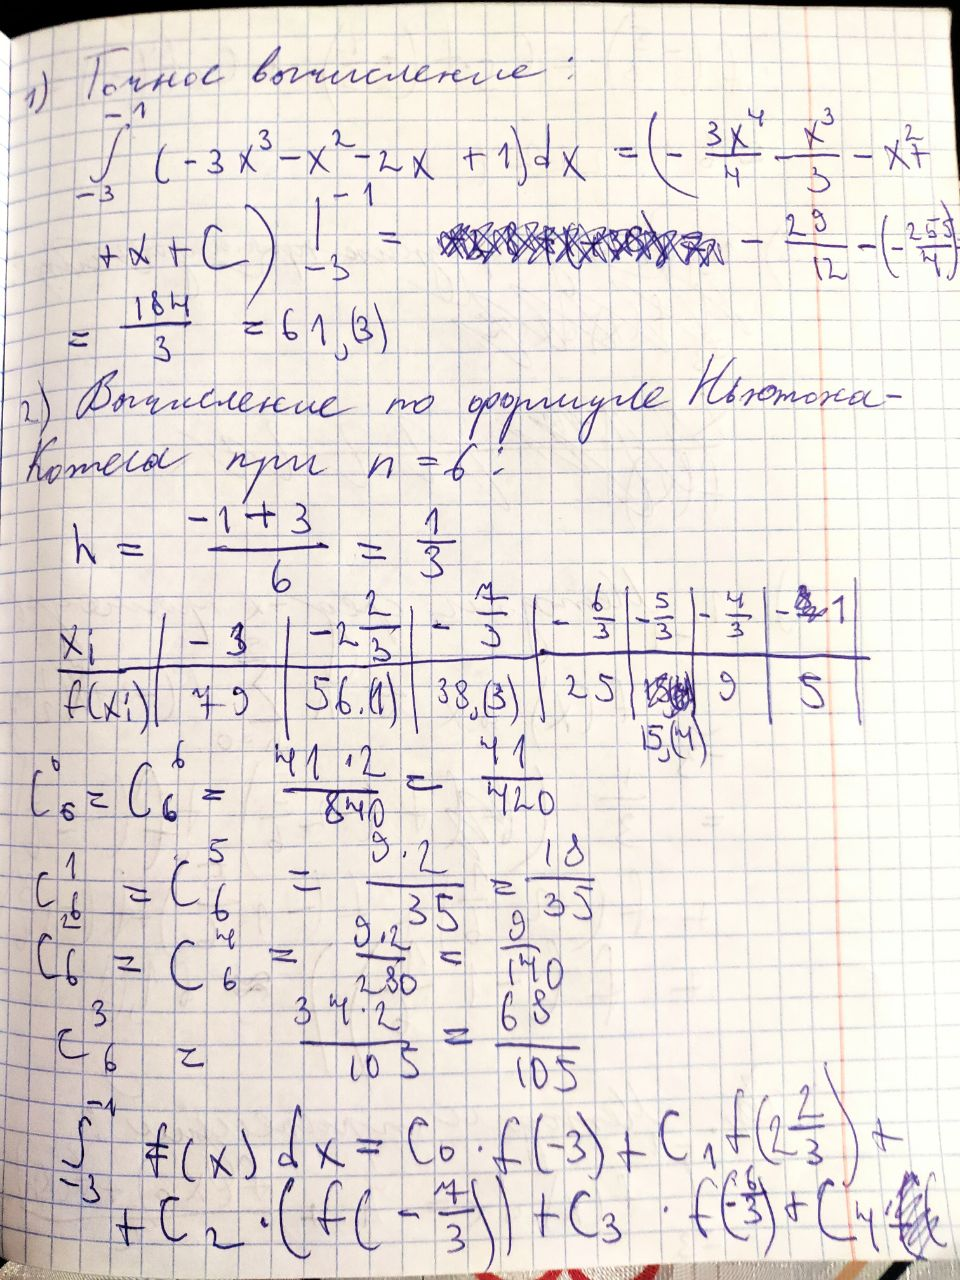 1) Точное вычисление:
∫_{-3}^{-1} (-3x³ - x² - 2x + 1)dx = (- 3x⁴/4 - x³/3 - x² +
+x + C) |_{-3}^{-1} = - 29/12 - (- 255/4) =
= 184/3 = 61,(3)
2) Вычисление по формуле Ньютона-
Котеса при n = 6:
h = (-1 + 3)/6 = 1/3
xi | -3 | -2 2/3 | - 7/3 | - 6/3 | - 5/3 | - 4/3 | -1
f(xi) | 79 | 56.(1) | 38,(3) | 25 | 15,(4) | 9 | 5
C₆⁰ = C₆⁶ = 41·2/840 = 41/420
C₆¹ = C₆⁵ = 9·2/35 = 18/35
C₆² = C₆⁴ = 9·2/280 = 9/140
C₆³ = 34·2/105 = 68/105
∫_{-3}^{-1} f(x) dx = C₀·f(-3) + C₁ f(2 2/3) +
+ C₂·(f(- 7/3)) + C₃ · f(- 6/3) + C₄